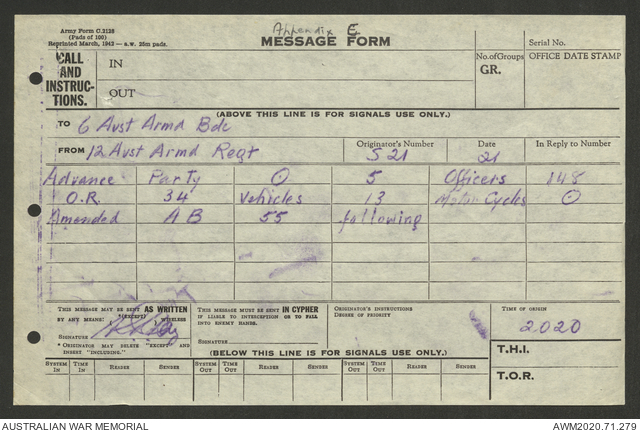 Army Form C.2128
(Pads of 100)
Reprinted March, 1942 — s.w. 25m pads.
Appendix E
MESSAGE FORM
Serial No.
CALL AND INSTRUC- TIONS.
IN
OUT
No. of Groups
GR.
OFFICE DATE STAMP
(ABOVE THIS LINE IS FOR SIGNALS USE ONLY.)
TO 6 Aust Armd Bde
FROM 12 Aust Armd Regt
Originator's Number
S 21
Date
21
In Reply to Number
Advance Party ⊙ 5 Officers 148
O.R. 34 Vehicles 13 Motor Cycles ⊙
Amended AB 55 following
THIS MESSAGE MAY BE SENT AS WRITTEN
BY ANY MEANS. *(EXCEPT) WIRELESS
SIGNATURE
* ORIGINATOR MAY DELETE "EXCEPT" AND
INSERT "INCLUDING."
THIS MESSAGE MUST BE SENT IN CYPHER
IF LIABLE TO INTERCEPTION OR TO FALL
INTO ENEMY HANDS.
SIGNATURE
ORIGINATOR'S INSTRUCTIONS
DEGREE OF PRIORITY
TIME OF ORIGIN
2020
T.H.I.
T.O.R.
(BELOW THIS LINE IS FOR SIGNALS USE ONLY.)
SYSTEM IN TIME IN READER SENDER SYSTEM OUT TIME OUT READER SENDER SYSTEM OUT TIME OUT READER SENDER
AUSTRALIAN WAR MEMORIAL
AWM2020.71.279